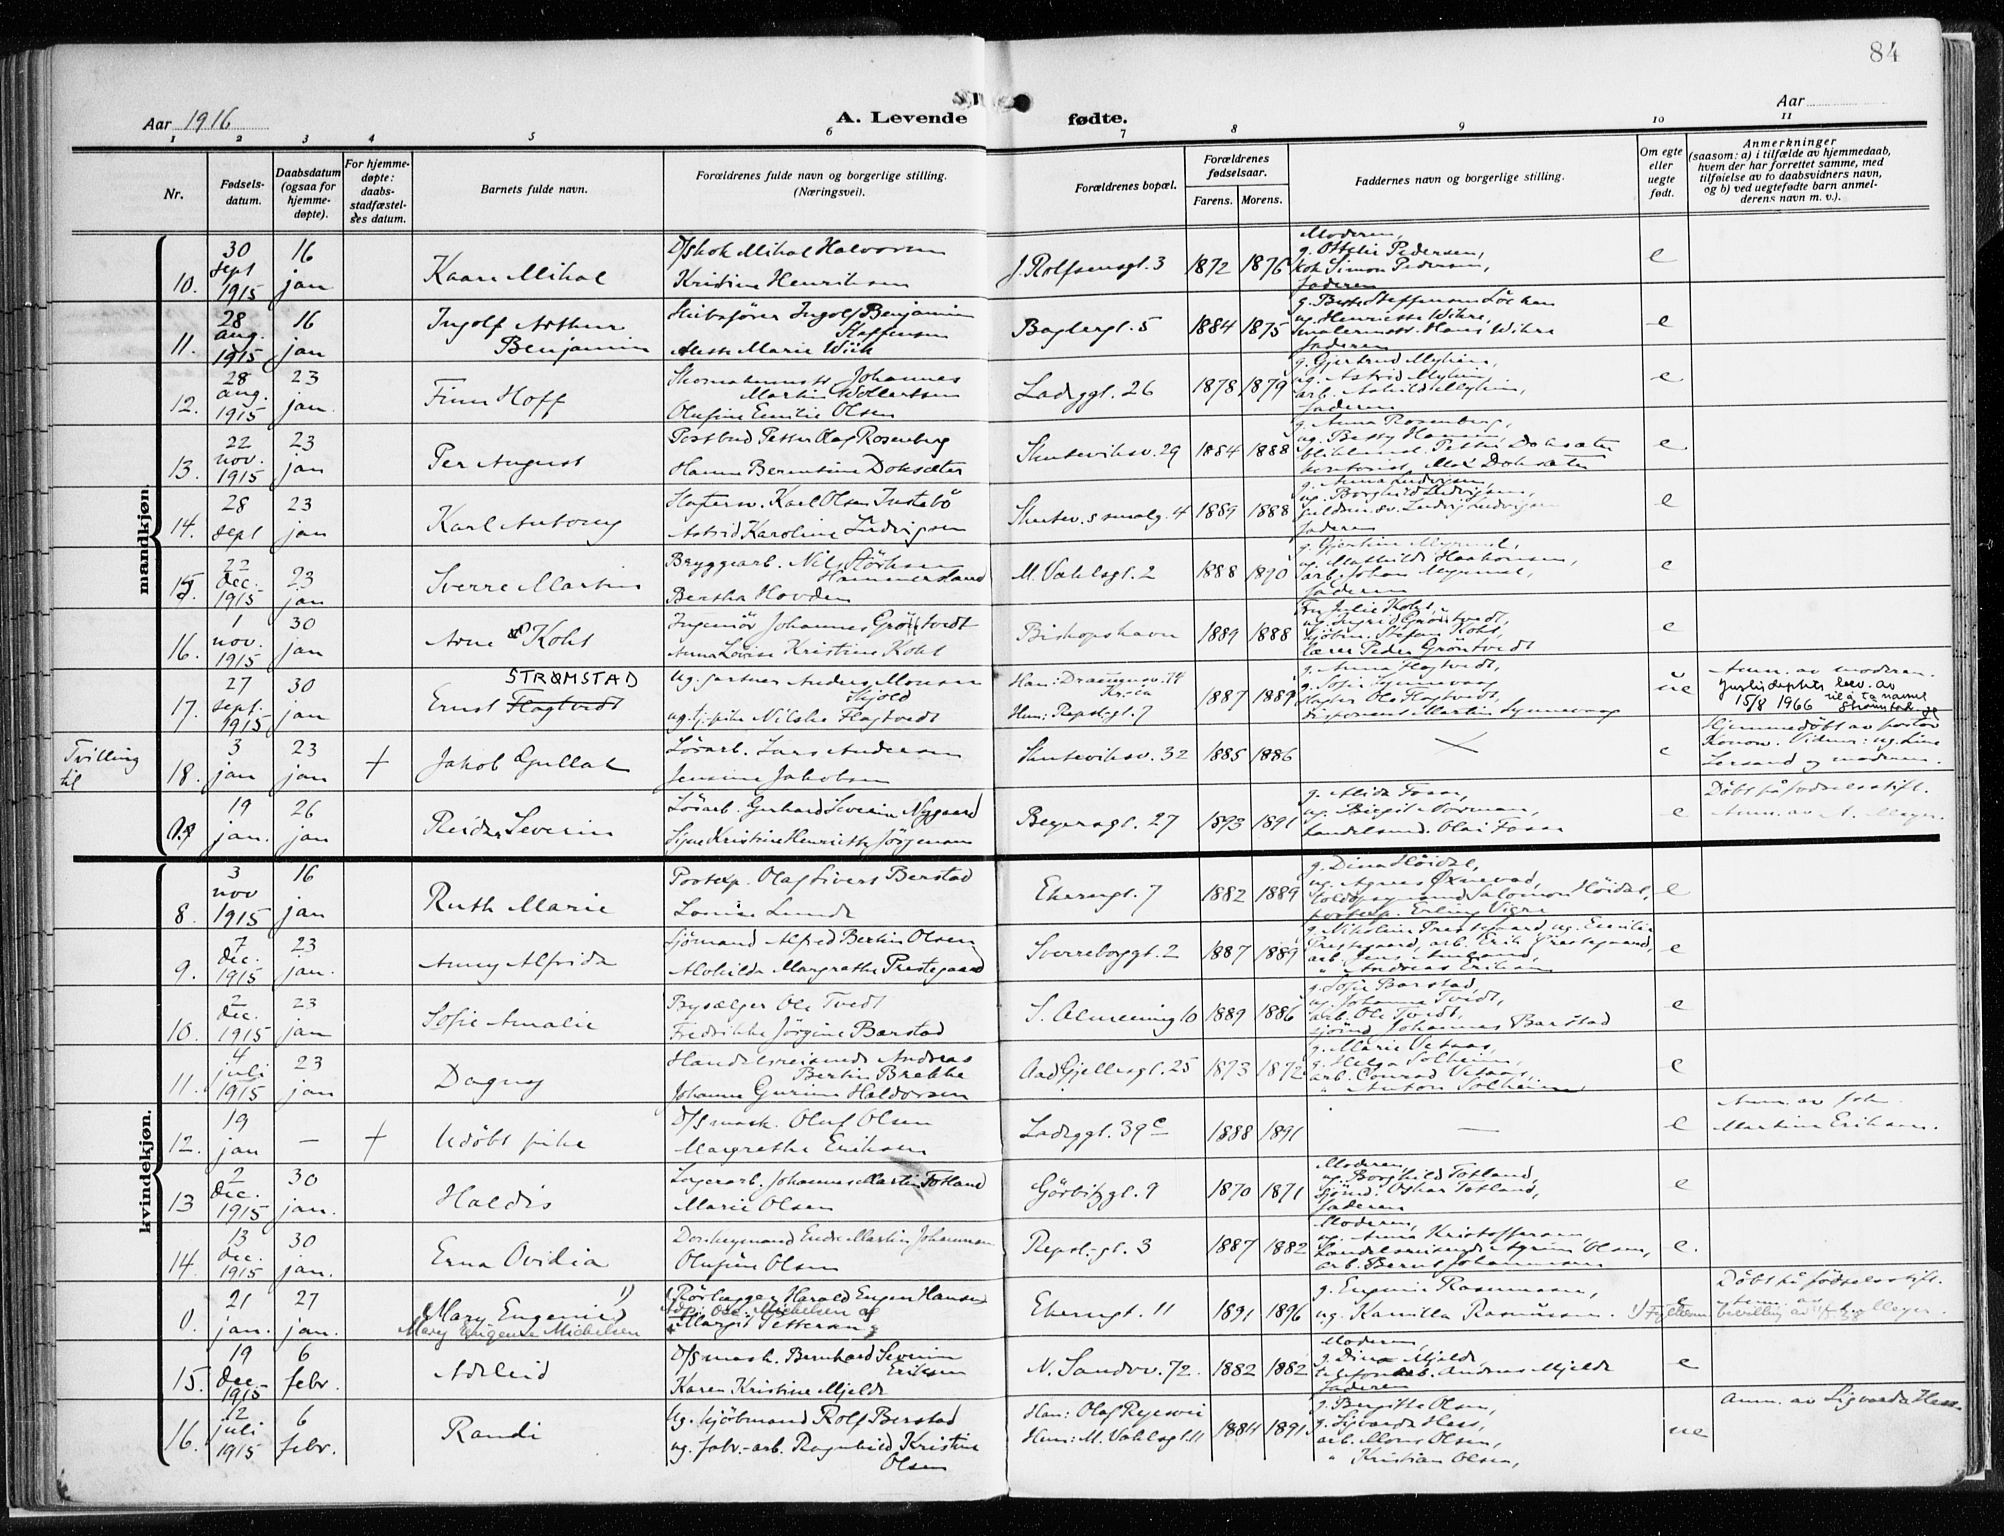 84
Aar 1916
A. Levende fødte.
Aar
1 2 3 4 5 6 7 8 9 10 11
Nr.
Fødsels-
datum.
Daabsdatum
(ogsaa for
hjemme-
døpte).
For hjemme-
døpte:
daabs-
stadfæstel-
ses datum.
Barnets fulde navn.
Forældrenes fulde navn og borgerlige stilling.
(Næringsvei).
Forældrenes bopæl.
Forældrenes
fødselsaar.
Farens. Morens.
Faddernes navn og borgerlige stilling.
Om egte
eller
uegte
født.
Anmerkninger
(saasom: a) i tilfælde av hjemmedaab,
hvem der har forrettet samme, med
tilføielse av to daabsvidners navn,
og b) ved uegtefødte barn anmel-
derens navn m. v.).
mandkjøn.
10. 30 sept 1915 16 jan Kaare Mikal
D/Skok Mikal Halvorsen
Kristine Henriksen
J. Rolfsensgt. 3 1872 1876
Moderen,
g. Ottilie Pedersen,
kok Simon Pedersen,
faderen
e
11. 28 aug. 1915 16 jan Ingolf Arthur
Benjamin
Skibsfører Ingolf Benjamin
Steffensen
Marie Wiik
Baglergt. 5 1884 1875
ug. Henriette Wikre,
malermstr. Hans Wikre
faderen
e
12. 28 aug. 1915 23 jan. Finn Hoff
Skomakermstr. Johannes
Martin Wollertsen
Olufine Emilie Olsen
Ladeggt. 26 1878 1879
faderen
e
13. 22 nov. 1915 23 jan Per August
Postbud Petter Olaf Rosenberg
Hanna Berentine Doksæter
Skuteviksv. 29 1884 1888
g. Anna Rosenberg,
ug. Betty Hansen,
Petter Doksæter
kontorist Doksæter
e
14. 28 sept 23 jan Karl Antony
Karl Olsen Instebø
Astrid Karoline Ludvigsen
Skutev. smalg. 4 1889 1888
g. Anna Ludvigsen,
ug. Borghild Ludvigsen,
faderen
e
15. 22 Dec. 1915 23 jan Sverre Martin
Bryggearb. Nils Størksen
Hammersland
Bertha Hovden
M. Vahlsgt. 2 1888 1890
faderen
e
16. 1 nov. 1915 30 jan Arne Koht
Ingeniør Johannes Gröntvedt
Anna Lovise Kristine Koht
Bishopshavn 1889 1888
Fru Julie Koht,
ug. Sigrid Gröntvedt,
Stefan Koht,
lærer Peder Gröntvedt
e
17. 27 sept. 1915 30 jan STRØMSTAD
Ernst Flagtvedt
Ug. gartner Anders Monsen
Skjold
ug. tj. pike Nilske Flagtvedt
Han: Drammensv. 74
Kr.ia
Hun: Repsl.gt. 7 1887 1889
g. Anna Flagtvedt,
Ole Flagtvedt,
ue
Anm. av moderen.
Justisdeptets bev. av
15/8 1966 til å ta navnet
Strømstad
Tvilling
til
18. 3 jan 23 jan + Jakob Gullak
Lösarb. Lars Andersen
Jensine Jakobsen
Skuteviksv. 32 1885 1886
e
Hjemmedöbt av pastor
Konow. Vidner: ug. Line
og moderen.
19 jan. 26 jan Reidar Severin
Lösarb. Gerhard Severin Nygaard
Signe Kristine Henriette Jörgensen
Beyersgt. 27 1893 1891
g. Alida Fosse,
ug. Birgit Norman,
handelsmd. Olai Fosse
e
Döbt på födselsstift.
Anm. av A. Meyer.
kvindekjøn.
8. 3 nov 1915 16 jan Ruth Marie
Postexp. Olaf Sivert Berstad
Lovise Lunde
Ekerengt. 7 1882 1889
g. Dina Höidal,
ug. Agnes Øxnevad,
Salomon Höidal,
postexp. Erling Vigre
e
9. 7 Dec. 1915 23 jan. Anny Alfrida
Sjömand Alfred Bertin Olsen
Alvhilda Margrethe Prestegaard
Sverreborggt. 2 1887 1889
g. Nikoline Prestegaard, ug. Emilie
Prestegaard, arb. Erik Prestegaard,
e
10. 2 Dec. 1915 23 jan Sofie Amalie
Bysælger Ole Tvedt
Fredrikke Jörgine Barstad
S. Almenning 10 1889 1886
g. Sofie Barstad,
ug. Johanna Tvedt,
arb. Ole Tvedt,
sjömd. Johannes Barstad
e
11. 4 juli 1915 23 jan Dagny
Handelsreisende Andreas
Bertin Brekke
Johanna Gurine Haldorsen
Aad Gjellesgt. 25 1873 1872
g. Marie Vetaas,
g. Helga Solheim,
arb. Conrad Vetaas,
" Anton Solheim
e
12. 19 jan — + Udöbt pike
D/Smask. Oluf Olsen
Margrethe Eriksen
Ladeggt. 39c 1888 1891 —
e
Martine Eriksen.
13 2 Dec. 1915 30 jan. Haldis
Lagerarb. Johannes Martin Totland
Marie Olsen
Görbitzgt. 9 1870 1871
Moderen,
ug. Borghild Totland,
sjömd. Oskar Totland,
faderen
e
14. 13 Dec. 1915 30 jan. Erna Ovidia
Endre Martin Johannesen
Olufine Olsen
Repsl.-gt. 3 1887 1882
Moderen,
ug. Anna Kristoffersen,
handelsreisende Olsen,
arb. Bernt Johannesen
e.
0. 21 jan. 27 jan. Mary Eugenie 1)
Mary Eugenie Michelsen
Rörlegger Harald Eugen Hansen
Margit Pettersen
Ekerengt. 11 1891 1896
g. Eugenie Rasmussen,
ug. Kamilla Rasmussen.
e
Döbt på födselsstift.
15. 19 Dec. 1915 6 febr. Adleid
D/Smask. Bernhard Severin
Eriksen
Karen Kristine Mjelde
N. Sandvv. 72. 1882 1882
Moderen,
g. Dina Mjelde,
telefonarb. Andreas Mjelde
faderen
e
16. 12 juli 1915 6 febr. Randi
Ug. kjöbmand Rolf Berstad
ug. fabr.-arb. Ragnhild Kristine
Olsen
Han: Olaf Ryesvei
Hun: M. Vahlsgt. 11 1884 1891
g. Birgitte Olsen,
g. Sigvarda Hess,
arb. Mons Olsen,
" Kristian Olsen,
ue
Anm. av Sigvarda Hess.